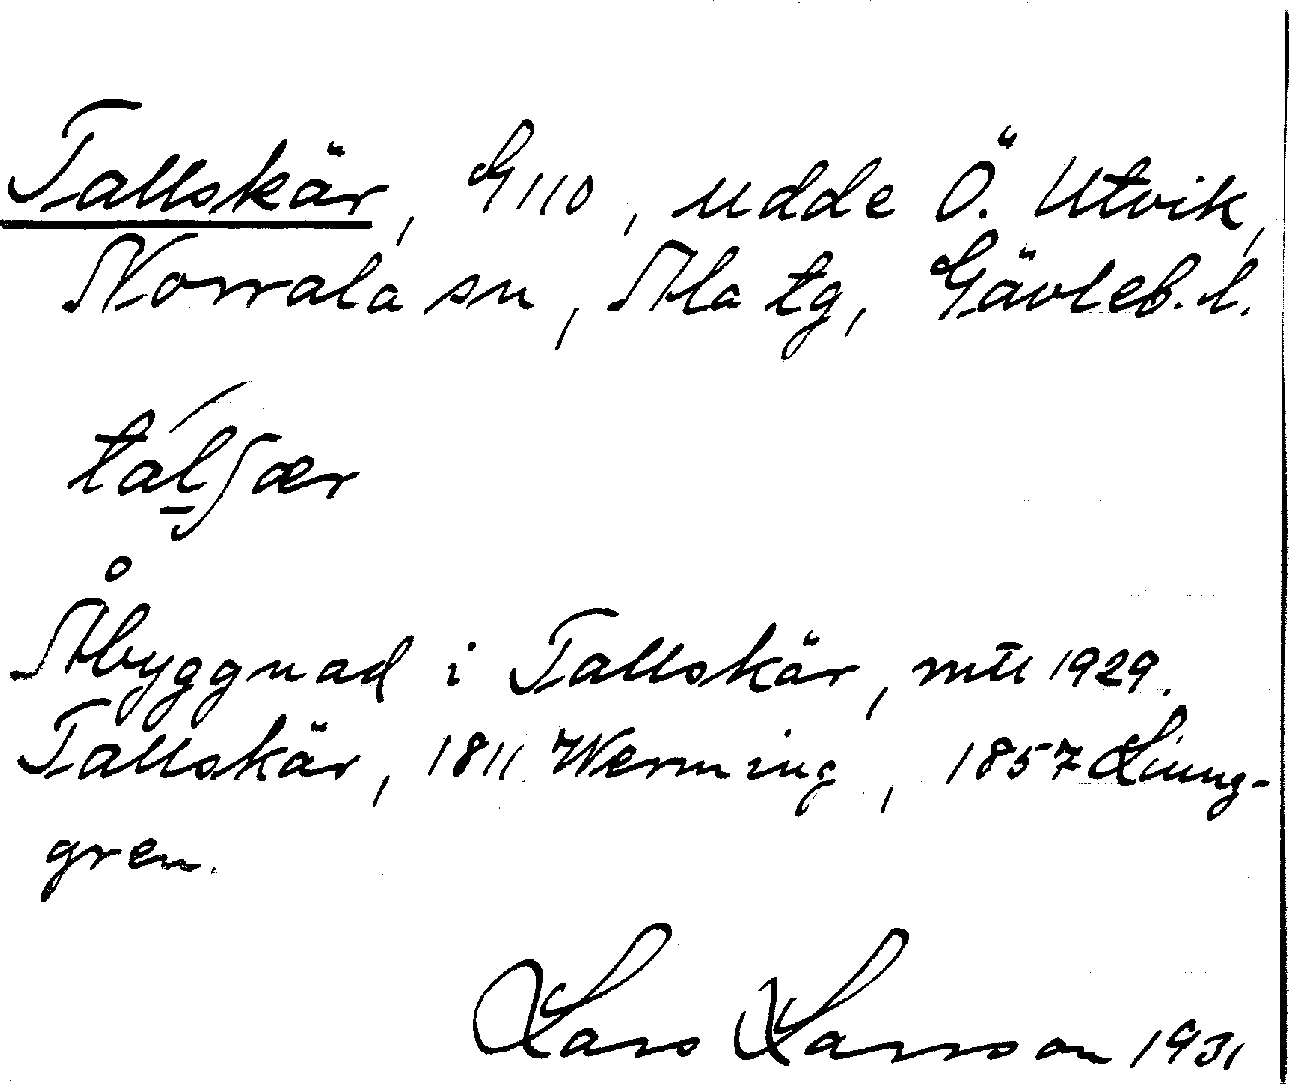 Tallskär, G 110, udde Ö. Utvik,
Norrala sn, Ala tg, Gävleb. l.
tálʃær
Åbyggnad i Tallskär, mtl 1929.
Tallskär, 1811 Werming, 1857 Ljung-
gren.
Lars Larsson 1931